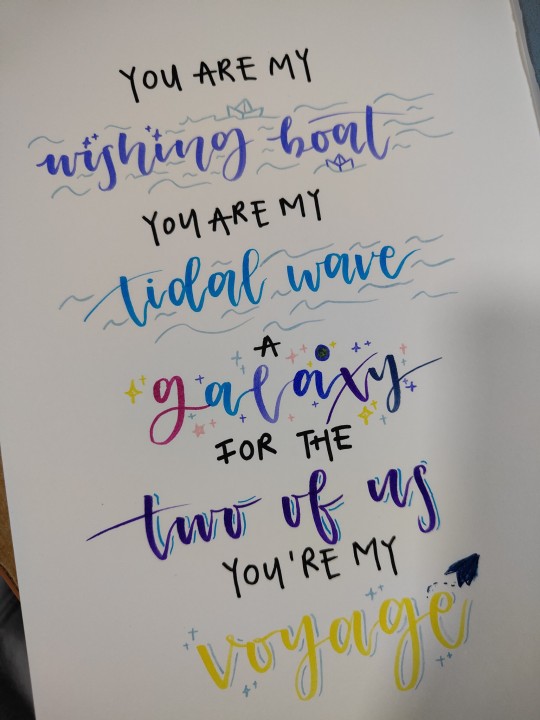 YOU ARE MY
wishing boat
YOU ARE MY
tidal wave
A
galaxy
FOR THE
two of us
YOU'RE MY
voyage